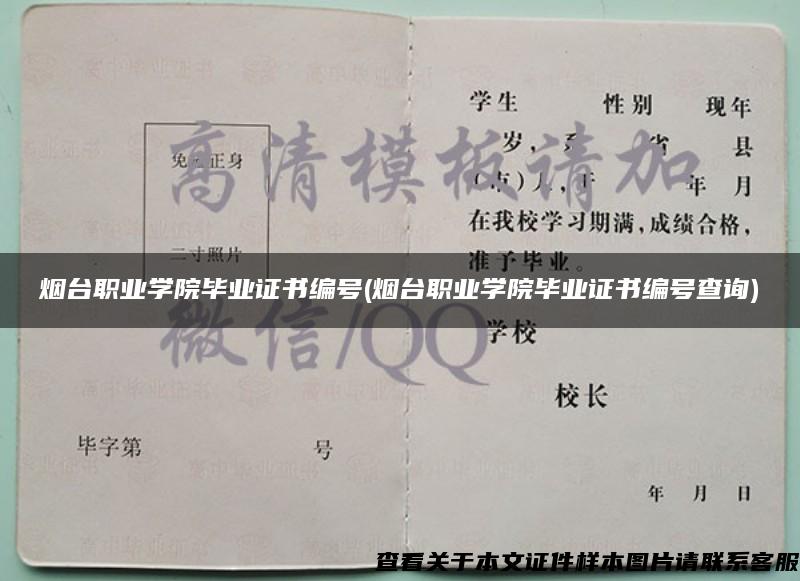 免冠正身
二寸照片
毕字第 号
学生 性别 现年
岁，系 省 县
（市）人，于 年 月
在我校学习期满，成绩合格，
准予毕业。
学校
校长
年 月 日
高清模板请加
微信/QQ
烟台职业学院毕业证书编号(烟台职业学院毕业证书编号查询)
查看关于本文证件样本图片请联系客服